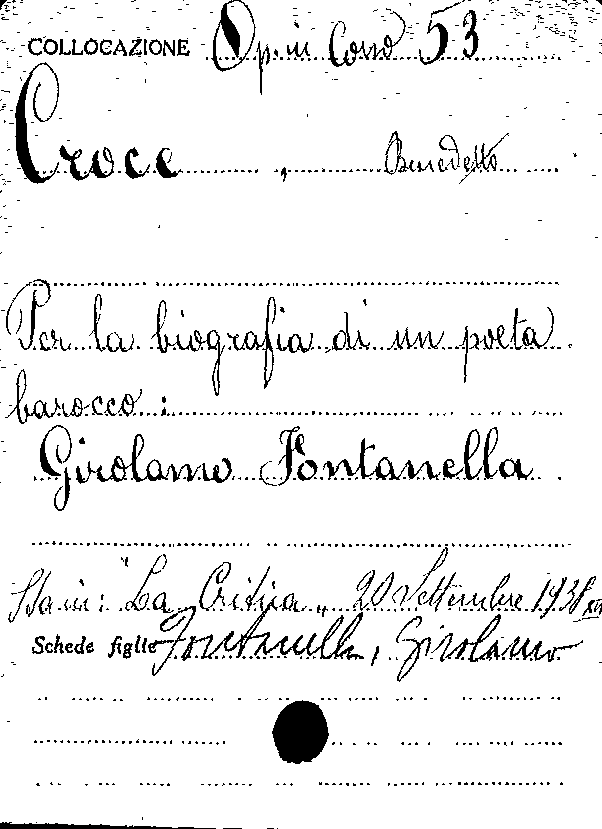 COLLOCAZIONE Op. in Corso 53
Croce, Benedetto
Per la biografia di un poeta
barocco:
Girolamo Fontanella
Sta in: "La Critica" 20 Settembre 1938 XVI
Schede figlie Fontanella, Girolamo